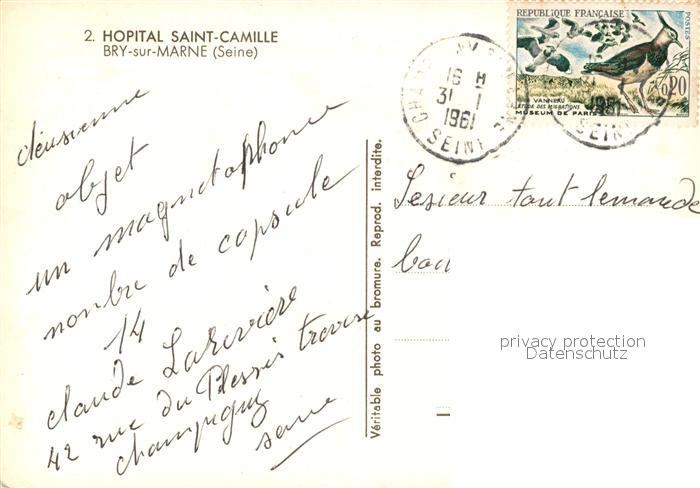 2. HOPITAL SAINT-CAMILLE
BRY-sur-MARNE (Seine)
deusienne
objet
un magnetophone
nonbre de capsule
14
claude Larivière
42 rue du Plessis trevise
champigny
seine
Véritable photo au bromure. Reprod. interdite.
REPUBLIQUE FRANÇAISE
POSTES
0,20
VANNEAU
ETUDE DES MIGRATIONS
MUSEUM DE PARIS
16 H
31 1
1961
SEINE
1961
SEINE
Lesieur tout lemonde
privacy protection
Datenschutz